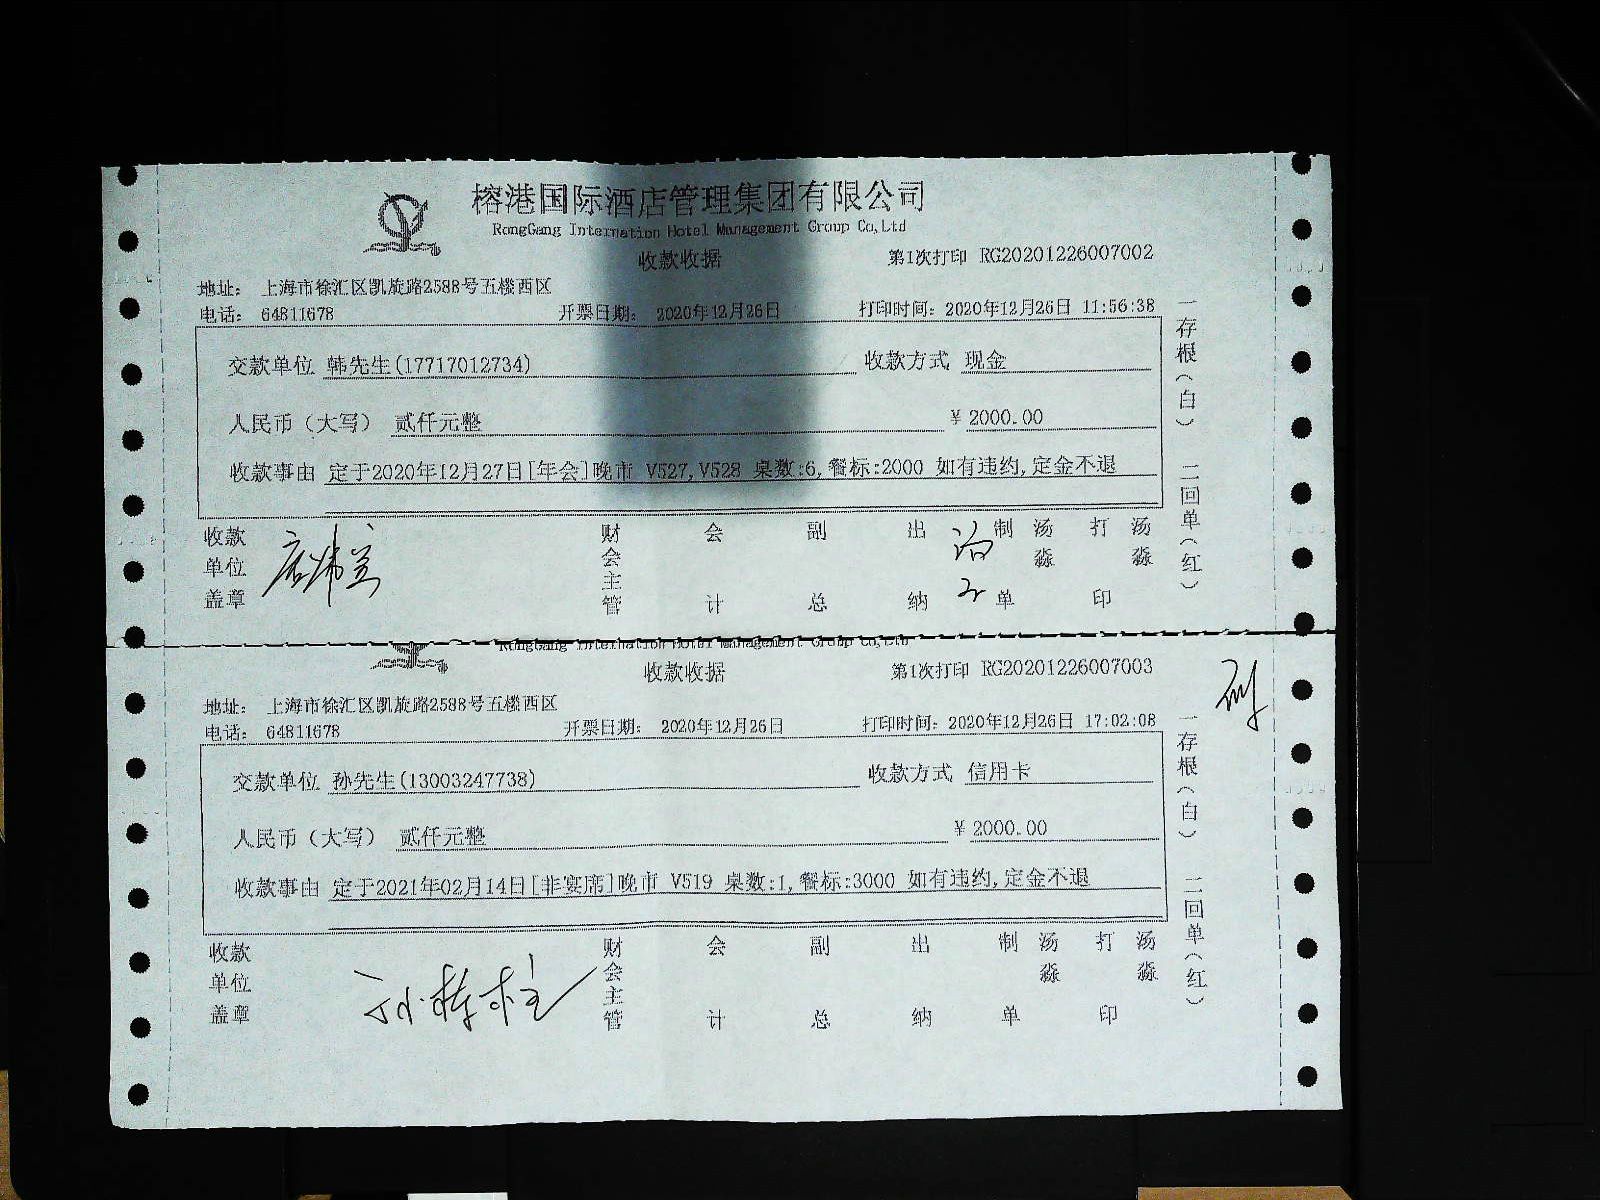 榕港国际酒店管理集团有限公司
RongGang Internation Hotel Management Group Co,Ltd
收款收据 第1次打印 RG20201226007002
地址： 上海市徐汇区凯旋路2588号五楼西区
电话： 64811678 开票日期： 2020年12月26日 打印时间：2020年12月26日 11:56:38
交款单位 韩先生(17717012734) 收款方式 现金
人民币（大写） 贰仟元整 ¥ 2000.00
收款事由 定于2020年12月27日[年会]晚市 V527,V528 桌数:6,餐标:2000 如有违约,定金不退
一存根（白） 二回单（红）
收款单位盖章 财会主管 会计 副总 出纳 制单 汤淼 打印 汤淼
RongGang Internation Hotel Management Group Co,Ltd
收款收据 第1次打印 RG20201226007003
地址： 上海市徐汇区凯旋路2588号五楼西区
电话： 64811678 开票日期： 2020年12月26日 打印时间：2020年12月26日 17:02:08
交款单位 孙先生(13003247738) 收款方式 信用卡
人民币（大写） 贰仟元整 ¥ 2000.00
收款事由 定于2021年02月14日[非宴席]晚市 V519 桌数:1,餐标:3000 如有违约,定金不退
一存根（白） 二回单（红）
收款单位盖章 财会主管 会计 副总 出纳 制单 汤淼 打印 汤淼